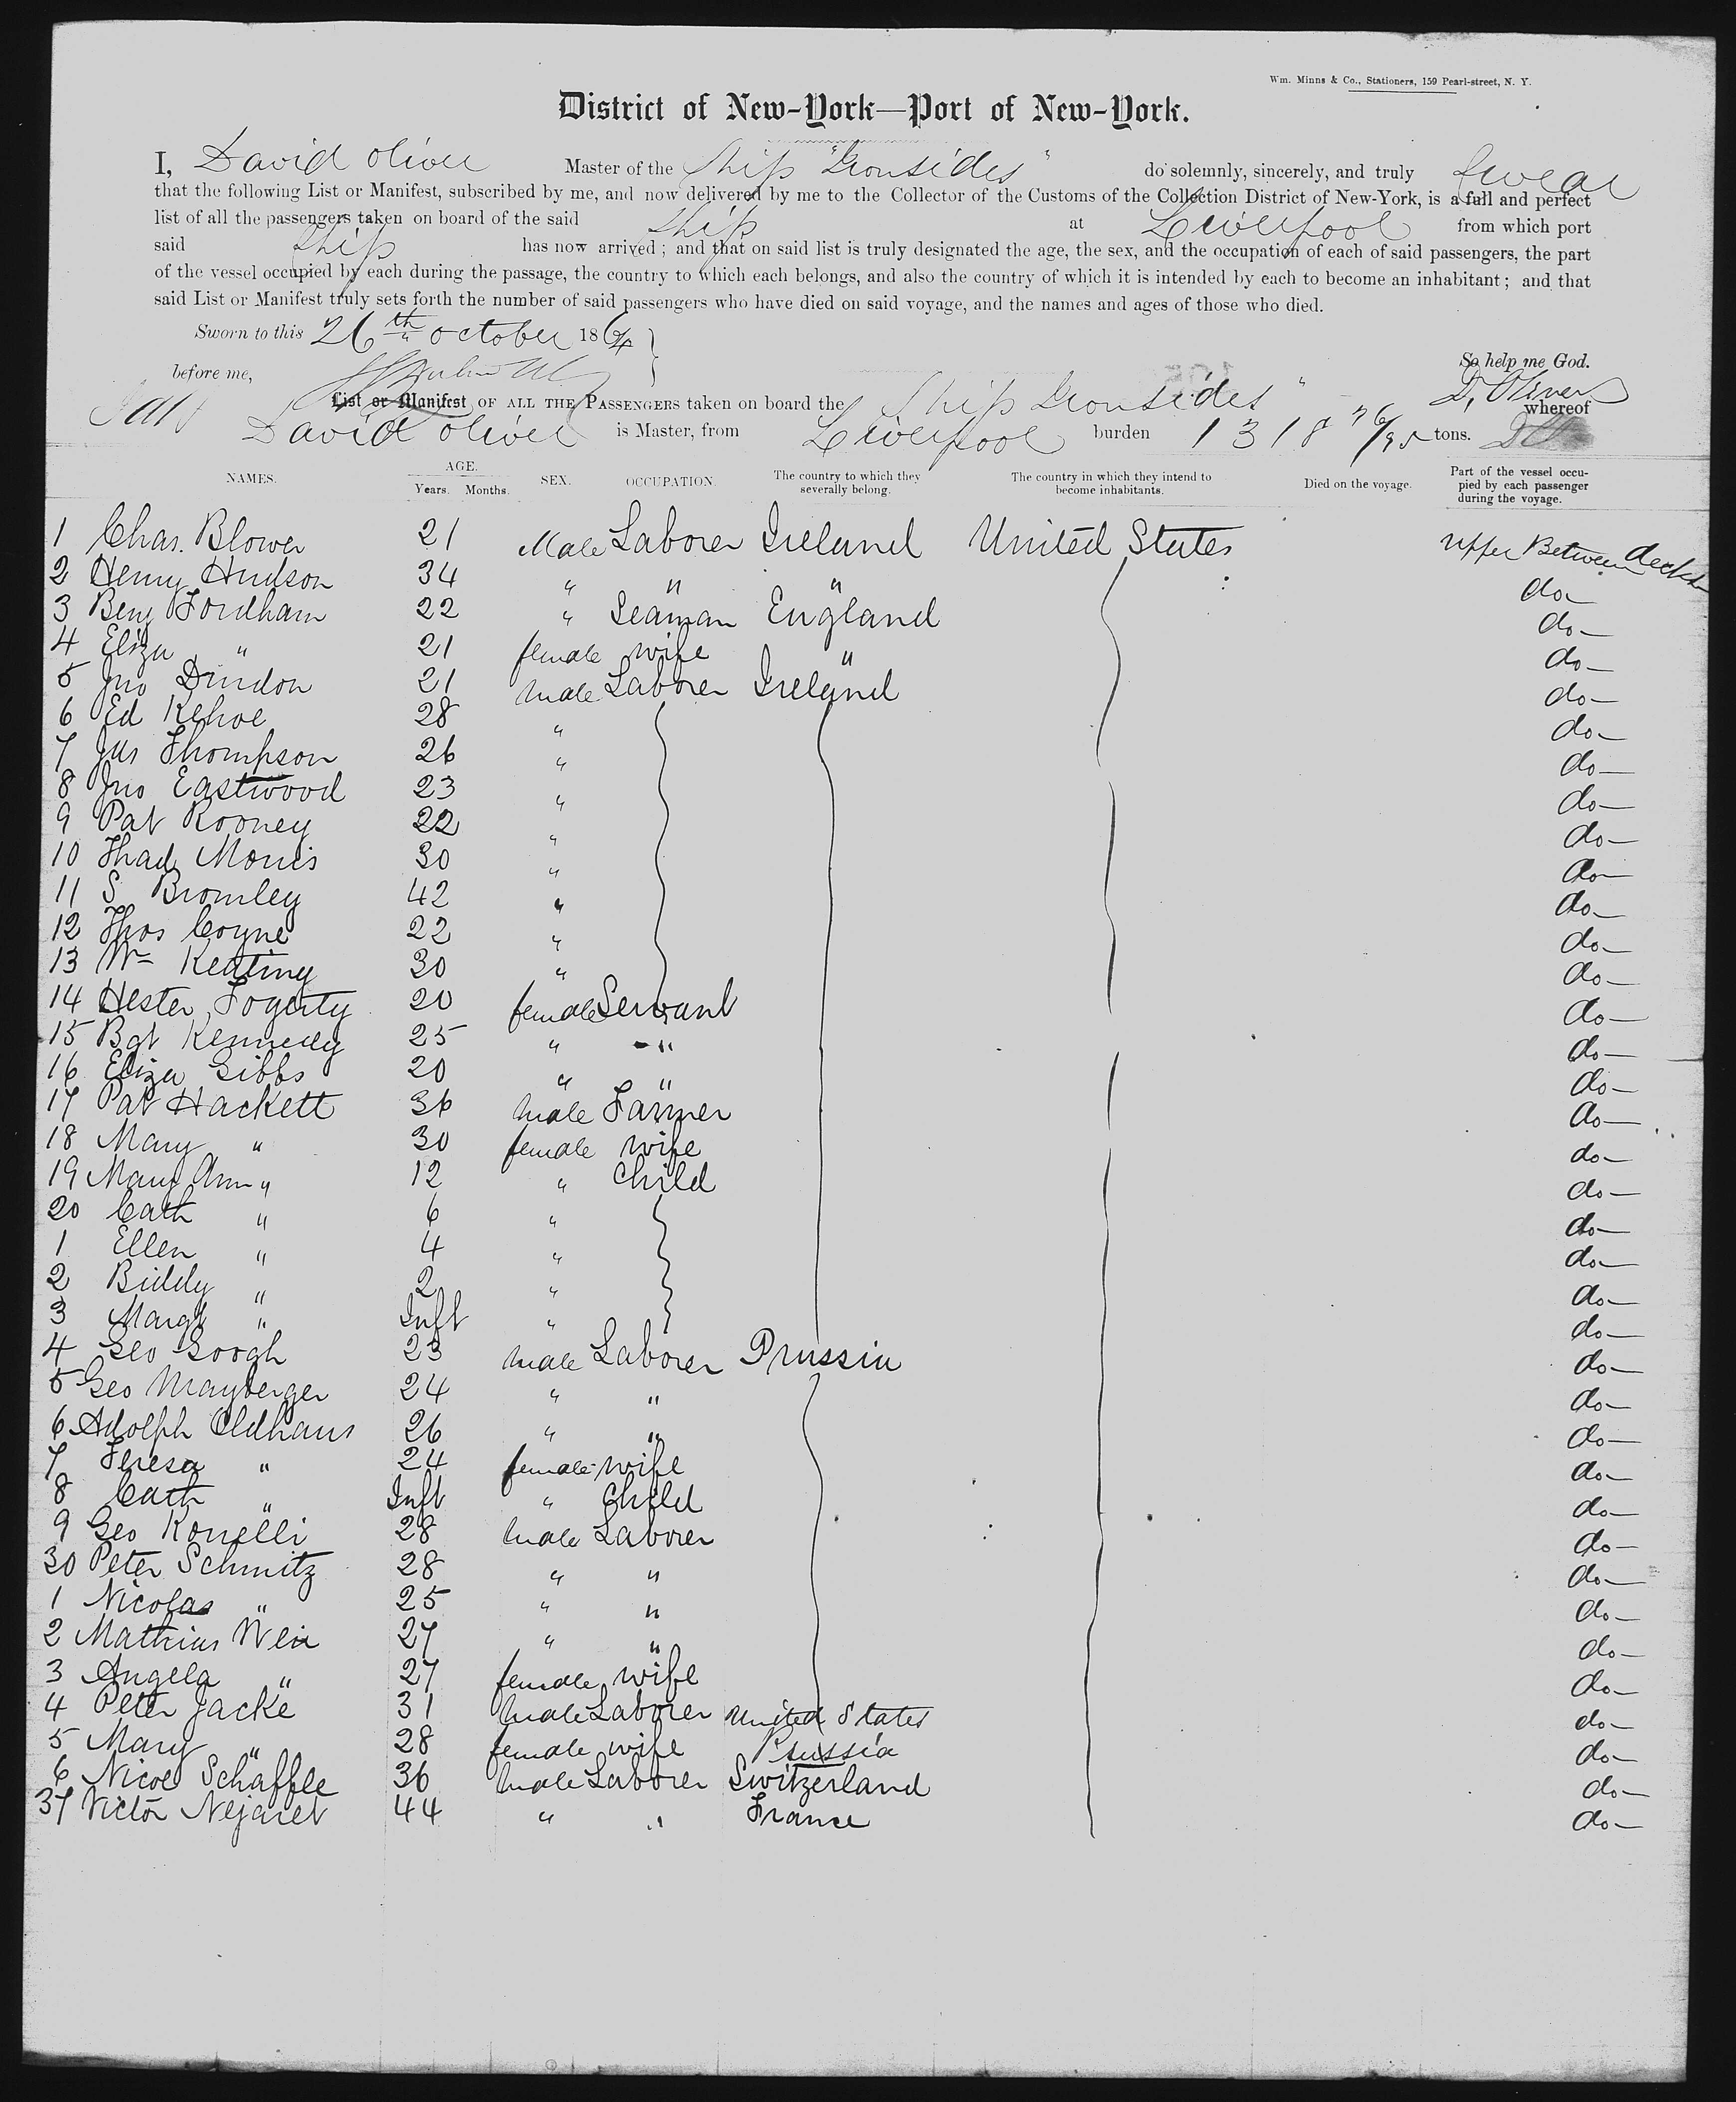 Wm. Minns & Co., Stationers, 159 Pearl-street, N. Y.
District of New-York—Port of New-York.
I, David Oliver Master of the Ship "Ironsides" do solemnly, sincerely, and truly swear
that the following List or Manifest, subscribed by me, and now delivered by me to the Collector of the Customs of the Collection District of New-York, is a full and perfect
list of all the passengers taken on board of the said Ship at Liverpool from which port
said Ship has now arrived; and that on said list is truly designated the age, the sex, and the occupation of each of said passengers, the part
of the vessel occupied by each during the passage, the country to which each belongs, and also the country of which it is intended by each to become an inhabitant; and that
said List or Manifest truly sets forth the number of said passengers who have died on said voyage, and the names and ages of those who died.
Sworn to this 26th October 1864
So help me God.
before me,
D. Oliver
List or Manifest OF ALL THE PASSENGERS taken on board the Ship Ironsides" whereof
David Oliver is Master, from Liverpool burden 1318 76/95 tons.
NAMES. AGE. Years. Months. SEX. OCCUPATION. The country to which they severally belong. The country in which they intend to become inhabitants. Died on the voyage. Part of the vessel occupied by each passenger during the voyage.
1 Chas. Blower 21 Male Laborer Ireland United States Upper Between decks
2 Henry Hudson 34 " " " do
3 Benj Fordham 22 " Seaman England do
4 Eliza " 21 female wife " do
5 Jno Dindon 21 Male Laborer Ireland do
6 Ed Kehoe 28 " do
7 Jas Thompson 26 " do
8 Jno Eastwood 23 " do
9 Pat Rooney 22 " do
10 Thad Morris 30 " do
11 S Bromley 42 " do
12 Thos Coyne 22 " do
13 Wm Keating 30 " do
14 Hester Fogerty 20 female Servant do
15 Bgt Kennedy 25 " " do
16 Eliza Gibbs 20 " " do
17 Pat Hackett 36 Male Farmer do
18 Mary " 30 female wife do
19 Mary Ann " 12 " Child do
20 Cath " 6 " do
1 Ellen " 4 " do
2 Biddy " 2 " do
3 Margt " Inft " do
4 Geo Googh 23 Male Laborer Prussia do
5 Geo Mayberger 24 " " do
6 Adolph Oldhaus 26 " " do
7 Teresa " 24 female wife do
8 Cath " Inft " Child do
9 Geo Konelli 28 Male Laborer do
30 Peter Schmitz 28 " " do
1 Nicolas " 25 " " do
2 Mathias Weir 27 " " do
3 Angela " 27 female wife do
4 Peter Jacke 31 Male Laborer United States do
5 Mary " 28 female wife Prussia do
6 Nicol Schaffle 36 Male Laborer Switzerland do
37 Victor Nejaret 44 " " France do